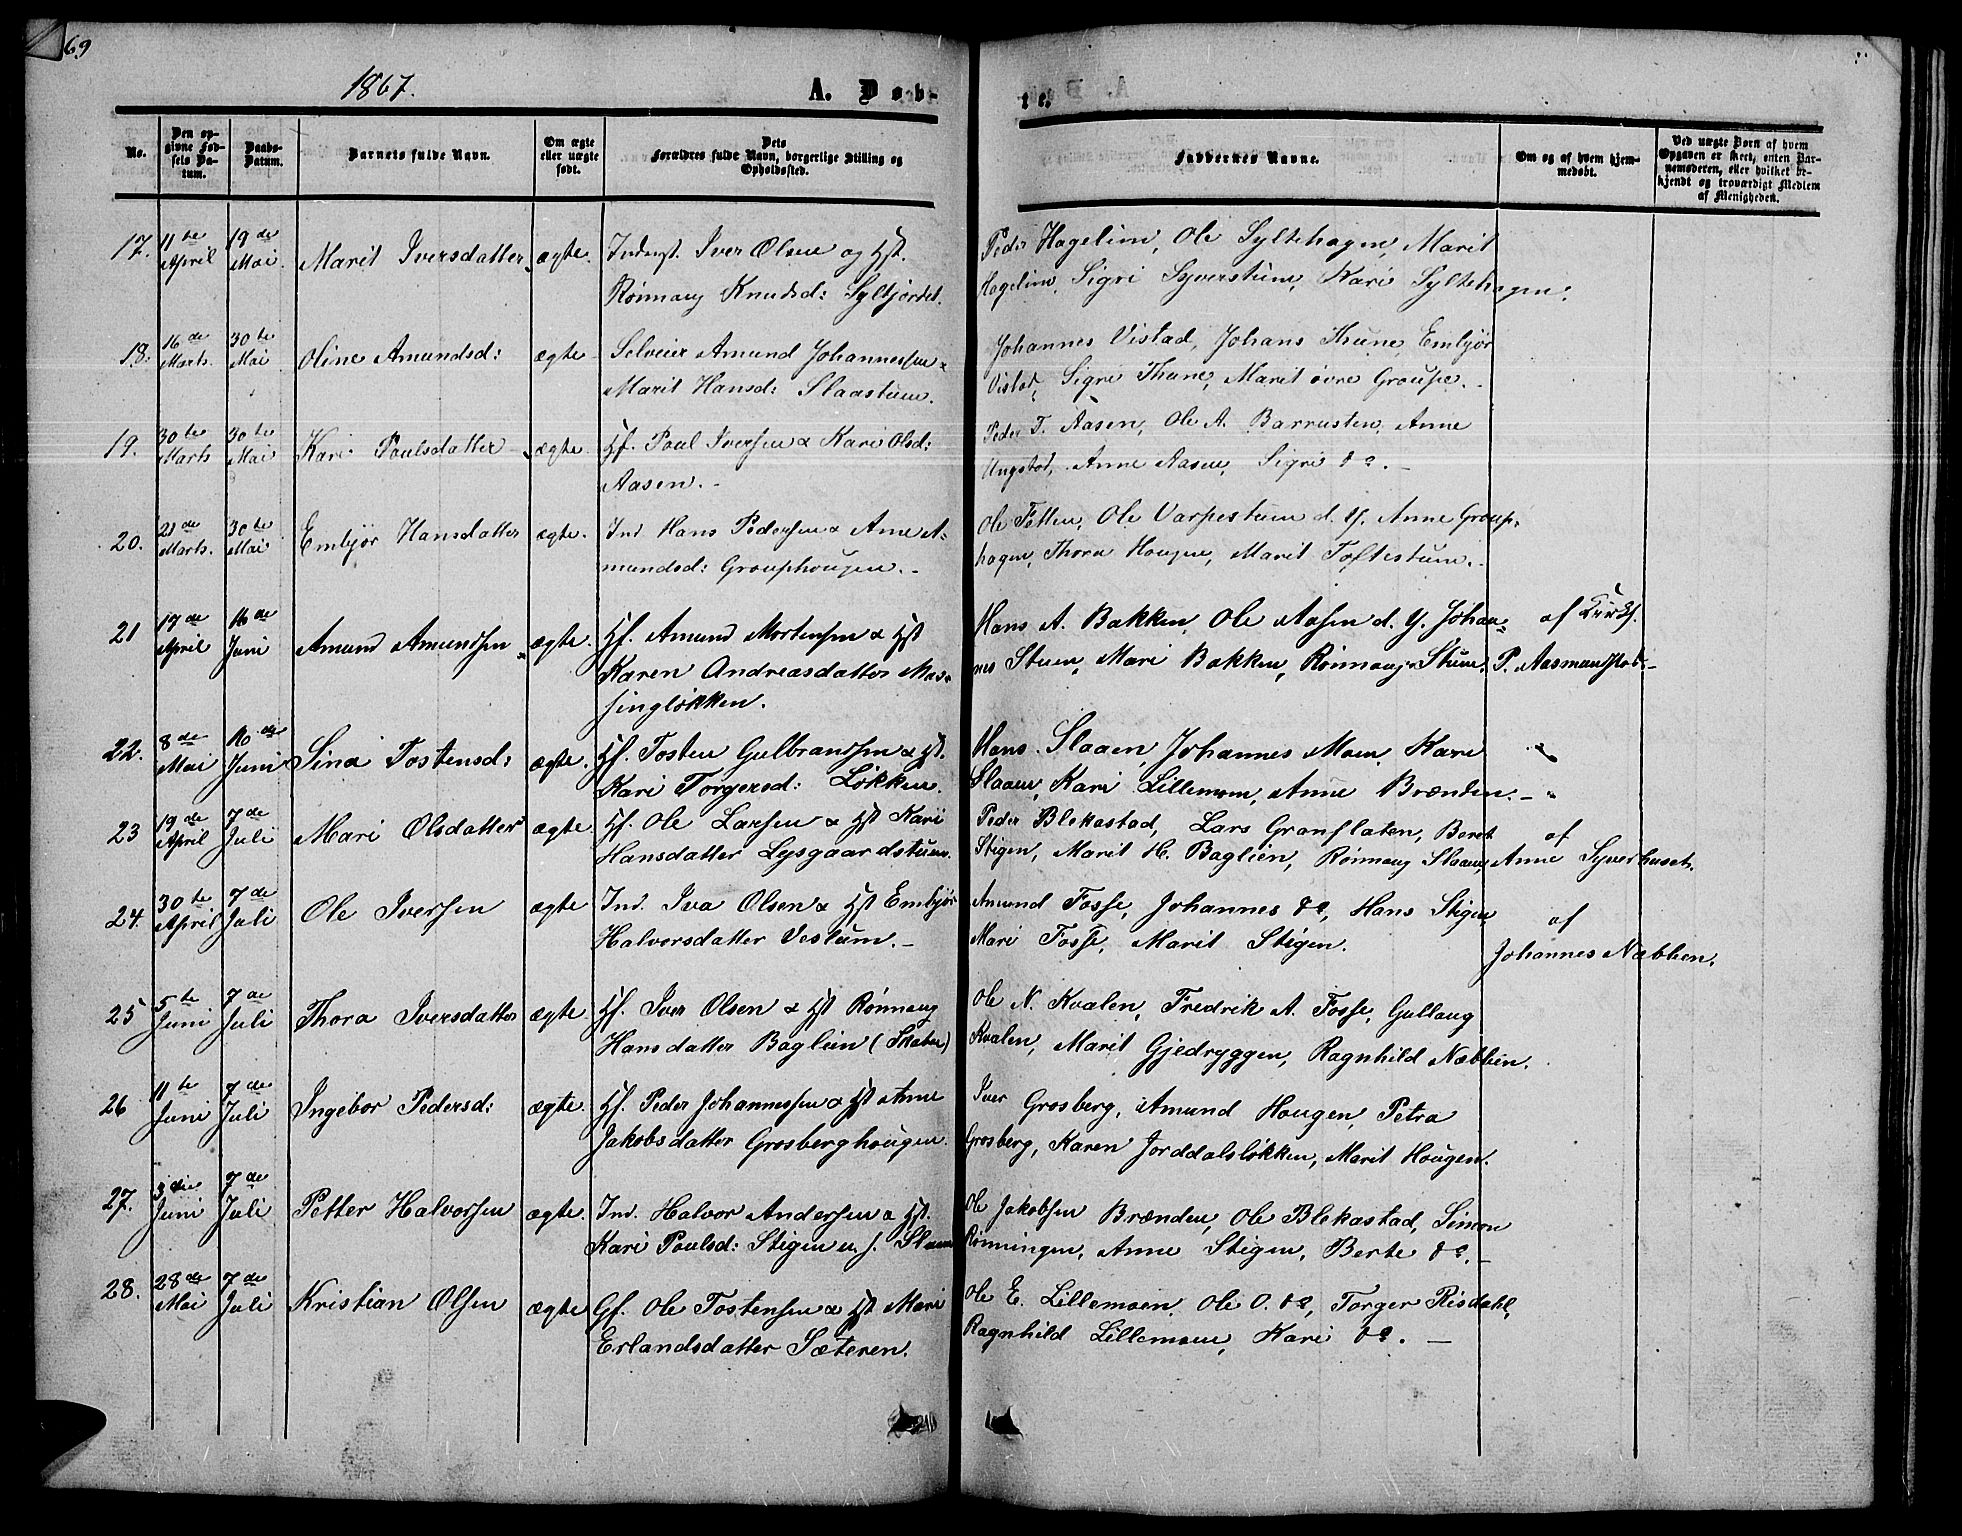 69
1867.
A. Døb-
te.
No.
Den op-
givne Fød-
sels Da-
tum.
Daabs-
Datum.
Barnets fulde Navn.
Om ægte
eller uægte
født.
Dets
Forældres fulde Navn, borgerlige Stilling og
Opholdssted.
Faddernes Navne.
Om og af hvem hjem-
medøbt.
Ved uægte Børn af hvem
Opgaven er skeet, enten Bar-
nemoderen, eller hvilket be-
kjendt og troværdigt Medlem
af Menigheden.
17. 11te April 19de Mai. Marit Iversdatter ægte. Inderst. Iver Olsen og Hst.
Rønnaug Knudsd: Syltjordet.
Peder Hagelim, Ole Syltehagen, Marit
Hagelim, Sigri Syverstuen, Kari Syltehagen.
18. 16de Marts. 30te Mai Oline Amundsd: ægte Selveier Amund Johannessen &
Marit Hansd: Slaastuen.
Johannes Vistad, Johans Thune, Embjør
Vistad, Sigri Thune, Marit øvre Groupe.
19. 30te Marts 30te Mai Kari Poulsdatter ægte. Hf. Poul Iversen & Kari Olsd:
Aasen.
Peder T. Aasen, Ole A. Barrusten, Anne
Ungstad, Anne Aasen, Sigri do.
20. 21de Marts. 30te Mai Embjør Hansdatter ægte. Ind. Hans Pedersen & Anne A-
mundsd: Grouphougen.
Ole Tetten, Ole Varpestuen d. y. Anne Group-
hagen, Thora Hougen, Marit Toftestuen.
21 17de April 16de Juni Amund Amundsen ægte. Hf. Amund Mortensen & Hst
Karen Andreasdatter Mas-
singløkken.
Hans A. Bakken, Ole Aasen d. y. Johan-
nes Stuen, Mari Bakken, Rønnaug Stuen.
af Kirks.
P. Aasmundstad.
22. 8de Mai 16de Juni Sina Tostensd: ægte. Hf. Tosten Gulbrandsen & Hst.
Kari Torgersd: Løkken.
Hans Slaaen, Johannes Moen, Kari
Slaaen, Kari Lillemoen, Anne Brænden.
23 19de April 7de Juli Mari Olsdatter ægte Hf. Ole Larsen & Hst Kari
Hansdatter Lysgaardstuen.
Peder Blekastad, Lars Granflaten, Beret
Stigen, Marit H. Baglien, Rønnaug Slaaen,
af
Anne Syverhuset.
24. 30te April 7de Juli Ole Iversen ægte Ind. Iva Olsen & Hst Embjør
Halvorsdatter Veslum.
Amund Fosse, Johannes do, Hans Stigen
Mari Fosse, Marit Stigen.
af
Johannes Næbben.
25 5te Juni 7de Juli Thora Iversdatter ægte Hf. Iver Olsen & Hst Rønnaug
Hansdatter Baglien (Skaber)
Ole N. Kvalen, Fredrik A. Fosse, Gullaug
Kvalen, Marit Gjedryggen, Ragnhild Næbben.
26 11te Juni 7de Juli Ingebor Pedersd: ægte. Hf. Peder Johannessen & Hst Anne
Jakobsdatter Grosberghougen.
Iver Grosberg, Amund Hougen, Petra
Grosberg, Karen Jorddalsløkken, Marit Hougen.
27. 3die Juni 7de Juli Petter Halvorsen ægte. Ind. Halvor Andersen & Hst.
Kari Poulsd: Stigen u. s. Slaaen
Ole Jakobsen Brænden, Ole Blekastad, Simon
Rønningen, Anne Stigen, Berte do.
28. 28de Mai 7de Juli Kristian Olsen ægte Gf. Ole Tostensen & Hst Mari
Erlandsdatter Sæteren.
Ole E. Lillemoen, Ole O. do, Torger Risdahl,
Ragnhild Lillemoen, Kari do.